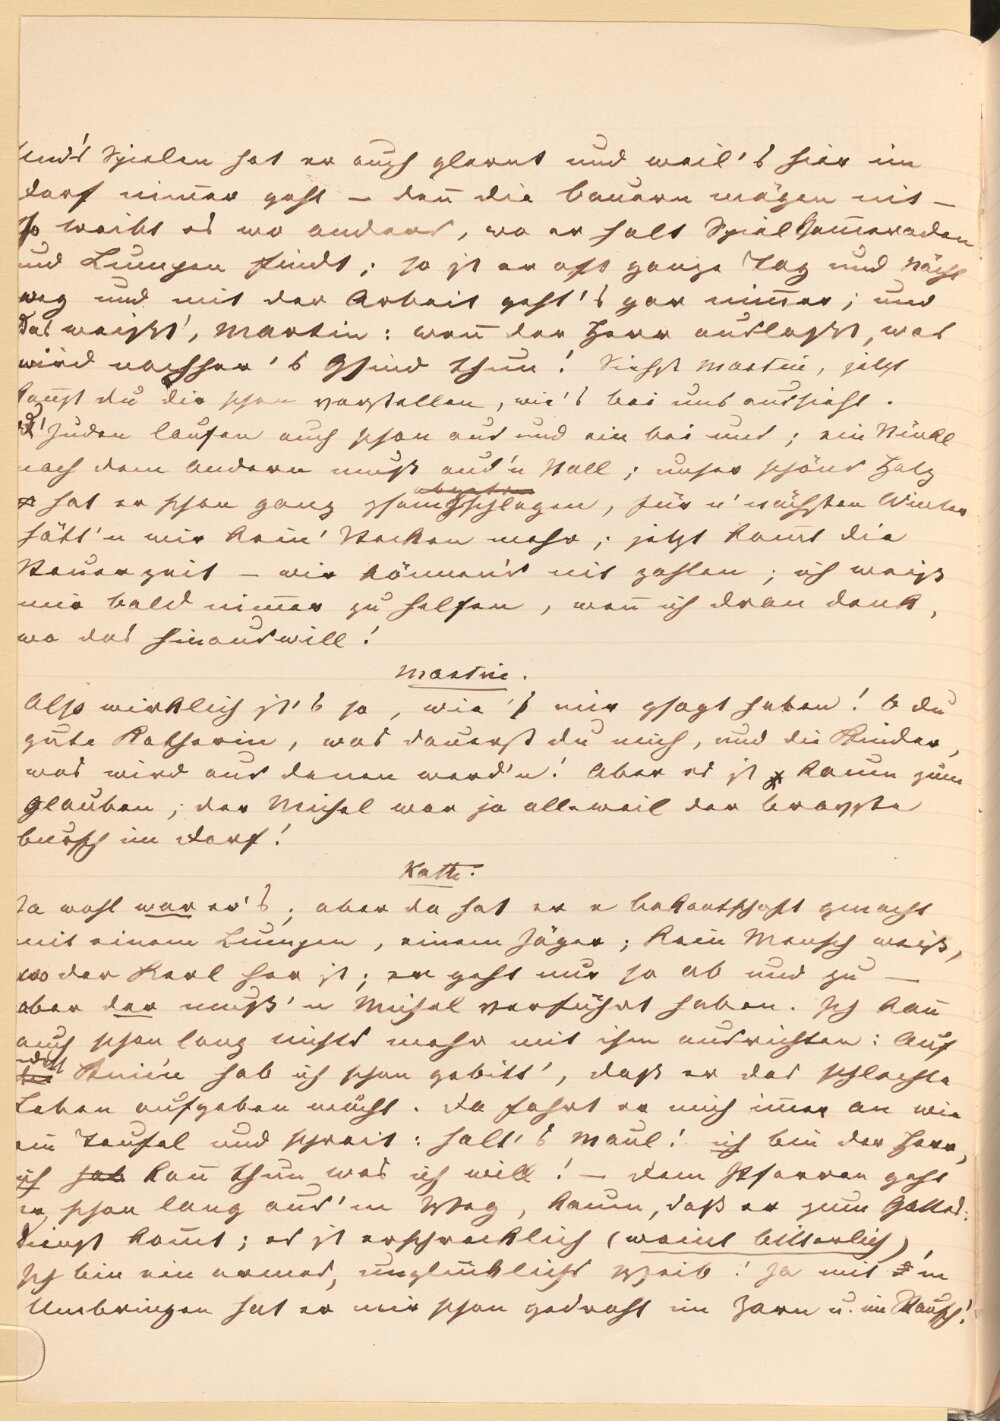 Und's Spielen hat er auch glernt und weil's hier im
Dorf nim̅er geht – den̅ die Bauern mögen nit –
so treibt er's wo anders, wo er halt Spielkam̅eraden
und Lumpen findt; so ist er oft ganze Tag und Nächt
weg und mit der Arbeit geht's gar nim̅er; und
das weißt', Martin: wen̅ der Herr auslaßt, was
wird nachher's Gsind thun! Siehst Martin, jetzt
kan̅st du dir schon vorstellen, wie's bei uns aussieht.
D' Juden laufen auch schon aus und ein bei uns; ein Stückl
nach dem andern muß aus'n Stall; unser schöns Holz
hat er schon ganz zsam̅gschlagen, für'n nächsten Winter
hätt'n mir kein' Stecken mehr; jetzt kom̅t die
Steuerzeit – wir können's nit zahlen; ich weiß
mir bald nim̅er zu helfen, wen̅ ich dran denk,
wo das hinauswill!
Martin.
Also wirklich ist's so, wie's mir gsagt haben! O du
gute Katherin, was dauerst du mich, und die Kinder,
was wird aus denen werd'n! Aber es ist kaum zum
Glauben; der Michel war ja alleweil der bravste
Bursch im Dorf!
Kath.
Ja wohl war er's; aber da hat er e Bekan̅tschaft gemacht
mit einem Lumpen, einem Jäger; kein Mensch weiß,
wo der Kerl her ist; er geht nur so ab und zu –
aber der muß'n Michel verführt haben. Ich kan̅
auch schon lang nichts mehr mit ihm ausrichten: Auf
Knie'n hab ich schon gebitt', daß er das schlechte
Leben aufgeben möcht. Da fahrt er mich im̅er an wie
ein Teufel und schreit: halt's Maul! ich bin der Herr,
ich hab kan̅ thun was ich will! – Dem Pfarrer geht
er schon lang aus'm Weg, kaum, daß er zum Gottes-
dienst kom̅t; es ist erschrecklich (weint bitterlich)
Ich bin ein armes, unglücklichs Weib! Ja mit'm
Umbringen hat er mir schon gedroht im Zorn u. im Rausch!